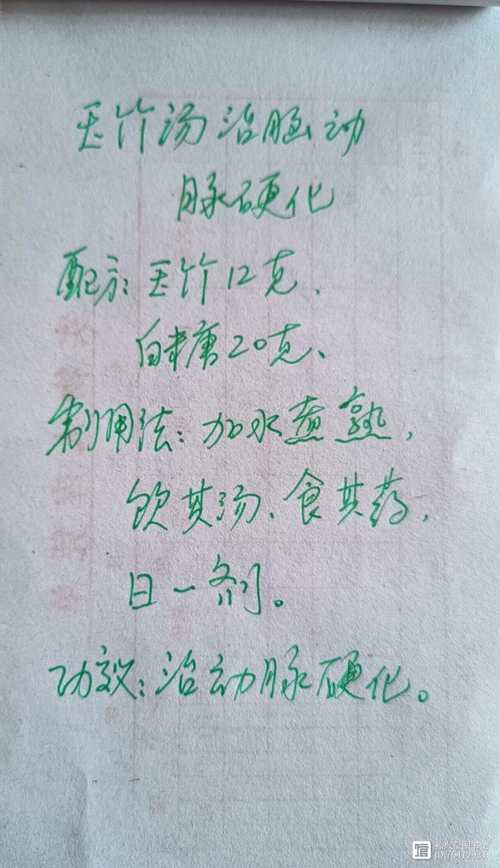 玉竹汤治脑动
脉硬化
配方：玉竹12克、
白糖20克、
制用法：加水煮熟，
饮其汤、食其药，
日一剂。
功效：治动脉硬化。